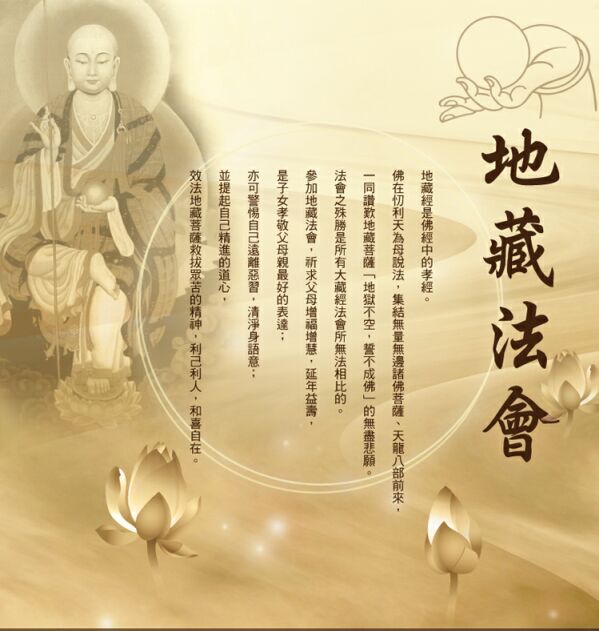 地藏法會
地藏經是佛經中的孝經。
佛在忉利天為母說法，集結無量無邊諸佛菩薩、天龍八部前來，
一同讚歎地藏菩薩「地獄不空，誓不成佛」的無盡悲願。
法會之殊勝是所有大藏經法會所無法相比的。
參加地藏法會，祈求父母增福增慧，延年益壽，
是子女孝敬父母親最好的表達；
亦可警惕自己遠離惡習，清淨身語意；
並提起自己精進的道心，
效法地藏菩薩救拔眾苦的精神，利己利人，和喜自在。